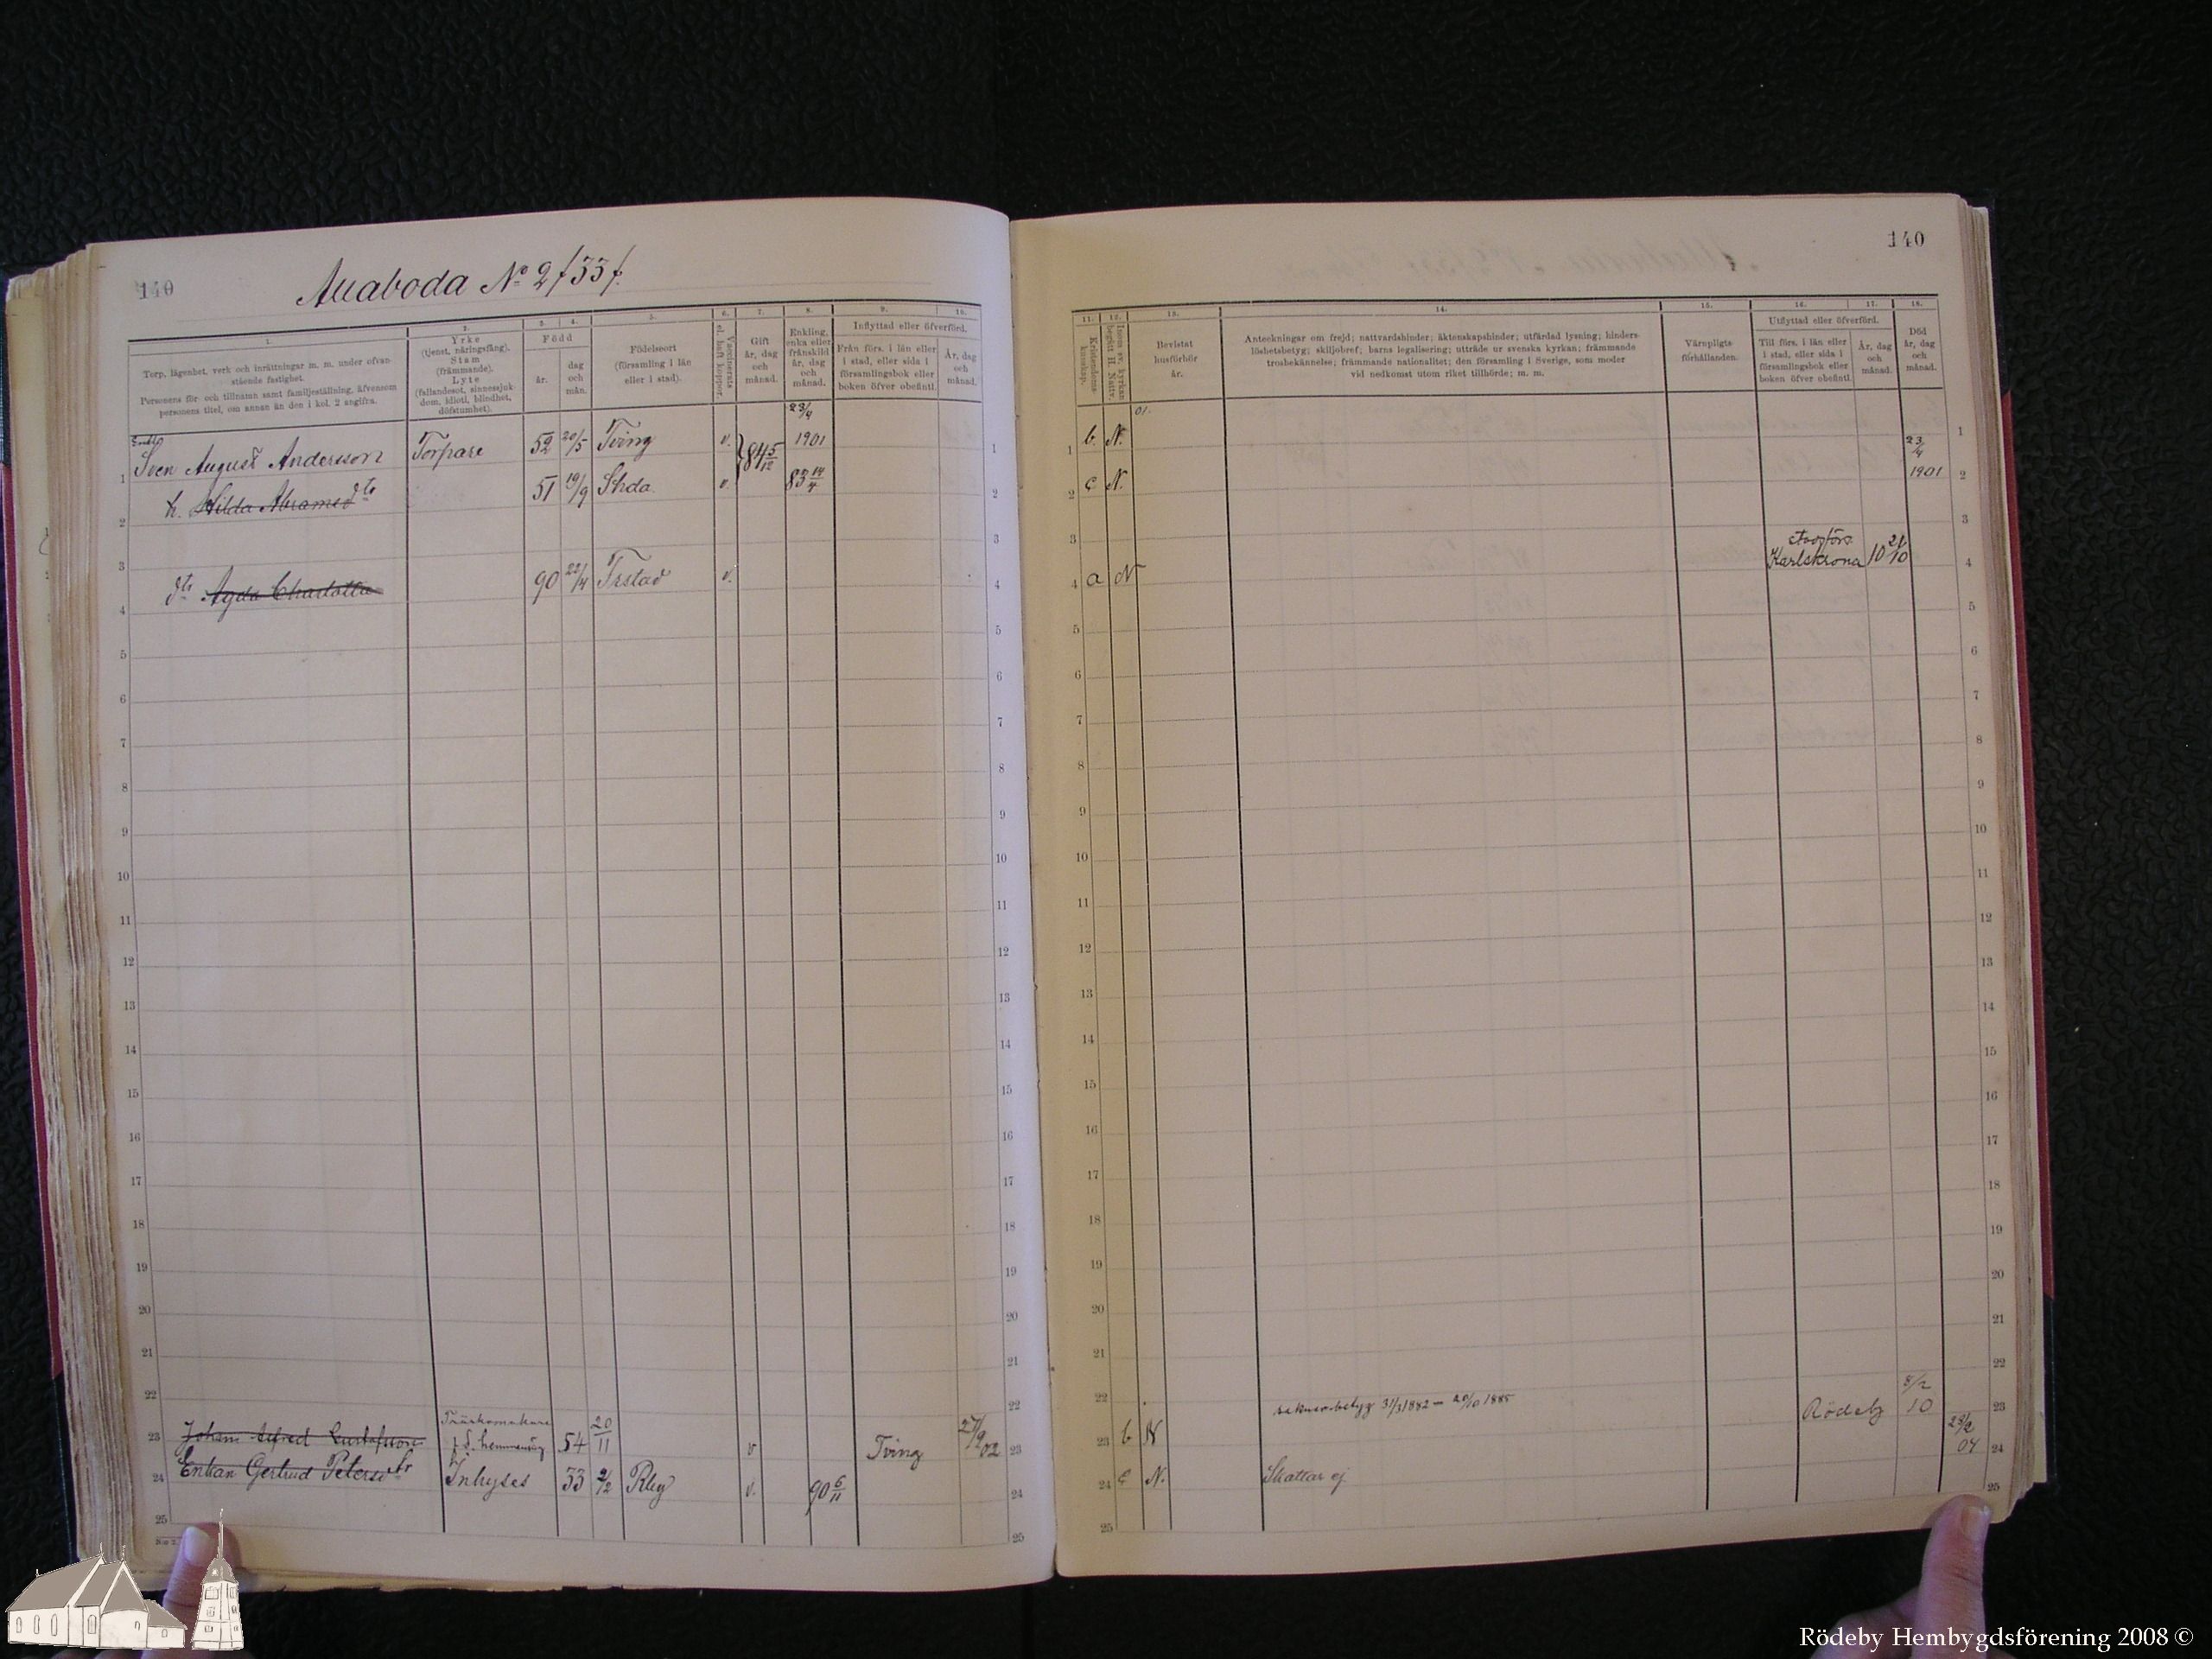 140
Allaboda No 2 f33f.
1. 2. 3. 4. 5. 6. 7. 8. 9. 10.
Torp, lägenhet, verk och inrättningar m. m. under ofvan-
stående fastighet.
Personens för- och tillnamn samt familjeställning, äfvensom
personens titel, om annan än den i kol. 2 angifna.
Yrke
(tjenst, näringsfång).
Stam
(främmande).
Lyte
(fallandesot, sinnessjuk-
dom, idioti, blindhet,
döfstumhet).
Född
år.
dag
och
mån.
Födelseort
(församling i län
eller i stad).
Vaccinerats
el. haft koppor.
Gift
år, dag
och
månad.
Enkling,
enka eller
frånskild
år, dag
och
månad.
Inflyttad eller öfverförd.
Från förs. i län eller
i stad, eller sida i
församlingsbok eller
boken öfver obefintl.
År, dag
och
månad.
Sven August Andersson Torpare 52 20/5 Tving v. 84 5/12 23/4 1901
h. Hilda Abramsdtr 51 19/9 v. 83 14/4
dtr Agda Charlotta 90 22/4 v.
Johan Alfred Gustafsson 54 20/11 v Tving 27/9 02
Enkan Gertrud Petersdtr Inhyses 33 2/2 Rby v. 90 6/11
140
11. 12. 13. 14. 15. 16. 17. 18.
Kristendoms-
kunskap.
Inom sv. kyrkan
begått H. Nattv.
Bevistat
husförhör
år.
Anteckningar om frejd; nattvardshinder; äktenskapshinder; utfärdad lysning; hinders-
löshetsbetyg; skiljobref; barns legalisering; utträde ur svenska kyrkan; främmande
trosbekännelse; främmande nationalitet; den församling i Sverige, som moder
vid nedkomst utom riket tillhörde; m. m.
Värnpligts-
förhållanden.
Utflyttad eller öfverförd.
Till förs. i län eller
i stad, eller sida i
församlingsbok eller
boken öfver obefintl.
År, dag
och
månad.
Död
år, dag
och
månad.
01.
b. N.
c N. 23/4 1901
a N stadsförs Karlskrona 10 21/10
b N saknar betyg 31/3 1882 – 20/10 1885 Rödeby 8/2 10
c N. Skattar ej. 23/2 04
Rödeby Hembygdsförening 2008 ©